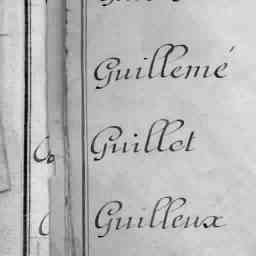 Guillemé
Guillot
Guilleux